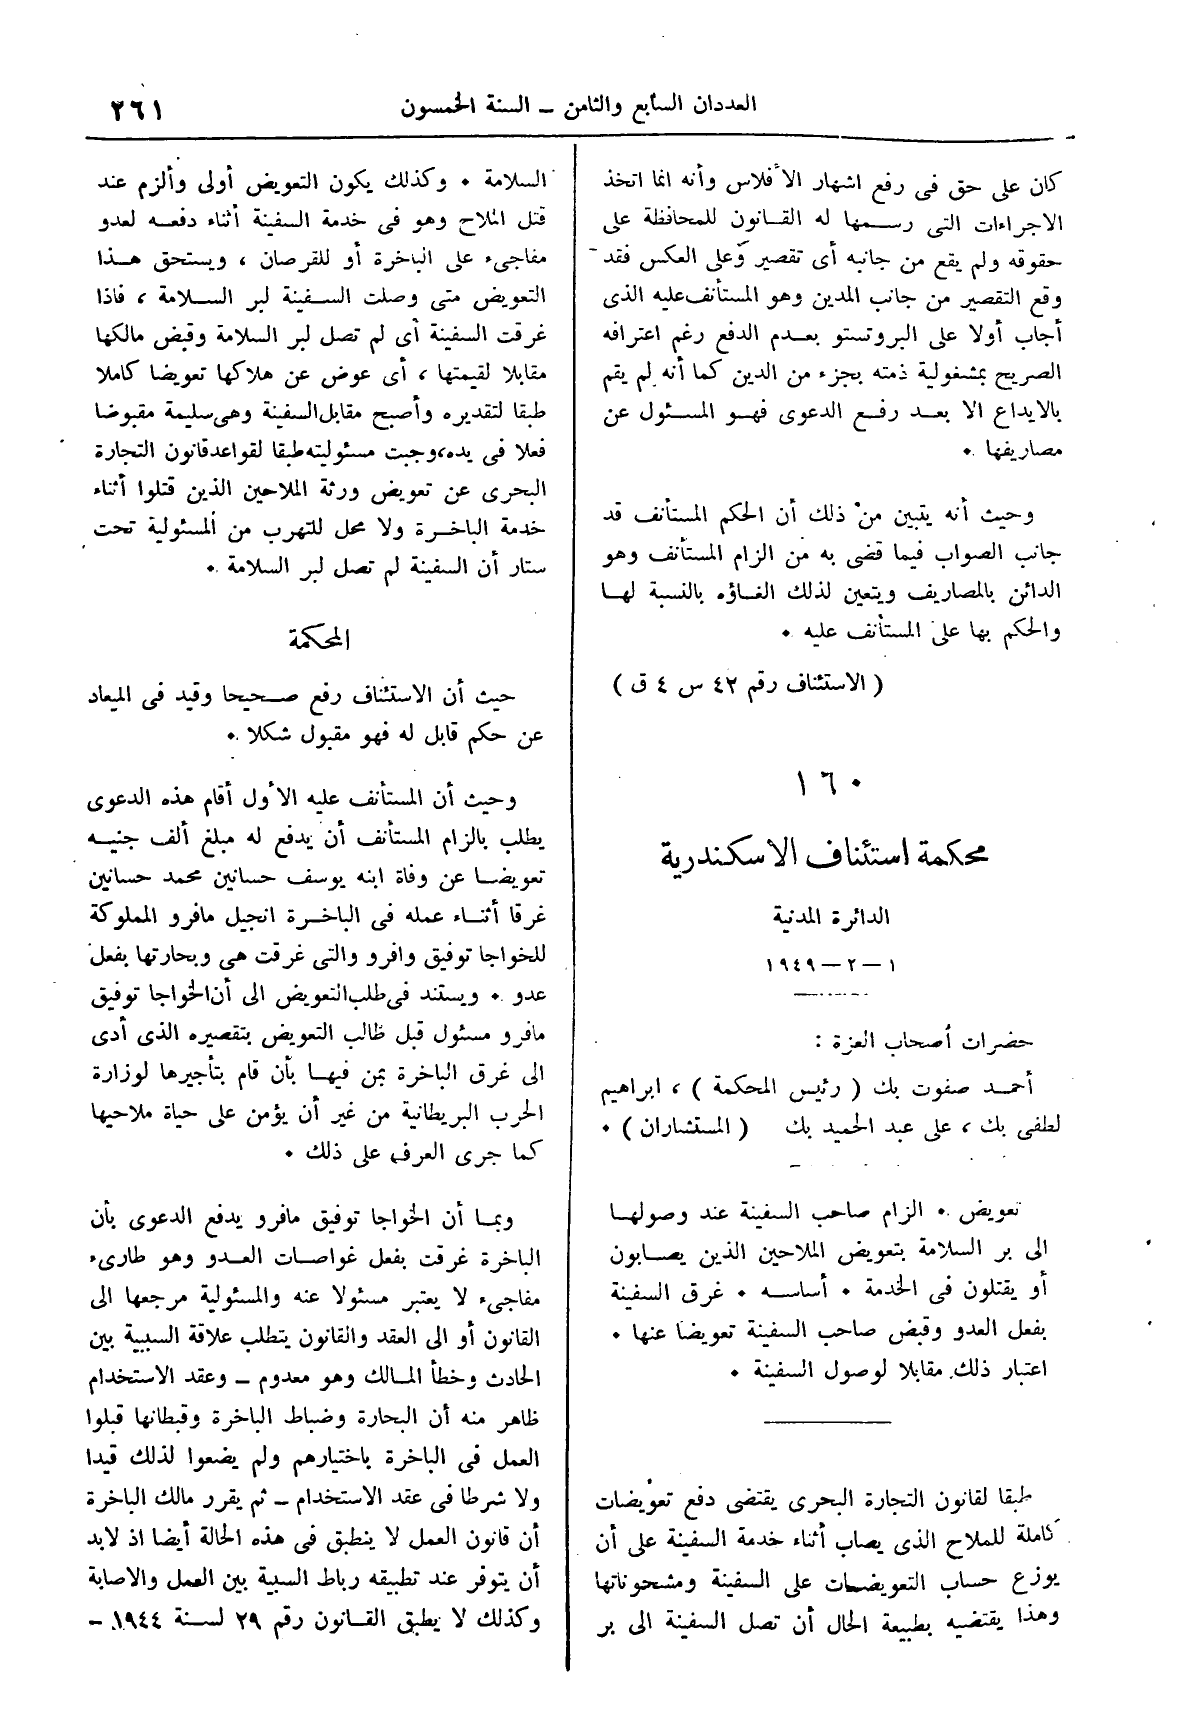 العددان السابع والثامن — السنة الخمسون
٢٦١
كان على حق فى رفع اشهار الأفلاس وأنه انما اتخذ
الاجراءات التى رسمها له القانون للمحافظة على
حقوقه ولم يقع من جانبه أى تقصير وعلى العكس فقد
وقع التقصير من جانب المدين وهو المستأنف عليه الذى
أجاب أولا على البروتستو بعدم الدفع رغم اعترافه
الصريح بمشغولية ذمته بجزء من الدين كما أنه لم يقم
بالايداع الا بعد رفع الدعوى فهو المسئول عن
مصاريفها .
وحيث أنه يتبين من ذلك أن الحكم المستأنف قد
جانب الصواب فيما قضى به من الزام المستأنف وهو
الدائن بالمصاريف ويتعين لذلك الغاؤه بالنسبة لها
والحكم بها على المستأنف عليه .
( الاستئناف رقم ٤٢ س ٤ ق )
١٦٠
محكمة استئناف الاسكندرية
الدائرة المدنية
١ – ٢ – ١٩٤٩
حضرات أصحاب العزة :
أحمد صفوت بك ( رئيس المحكمة ) ، ابراهيم
لطفى بك ، على عبد الحميد بك ( المستشاران ) .
تعويض . الزام صاحب السفينة عند وصولها
الى بر السلامة بتعويض الملاحين الذين يصابون
أو يقتلون فى الخدمة . أساسه . غرق السفينة
بفعل العدو وقبض صاحب السفينة تعويضا عنها .
اعتبار ذلك مقابلا لوصول السفينة .
طبقا لقانون التجارة البحرى يقتضى دفع تعويضات
كاملة للملاح الذى يصاب أثناء خدمة السفينة على أن
يوزع حساب التعويضات على السفينة ومشحوناتها
وهذا يقتضيه بطبيعة الحال أن تصل السفينة الى بر
السلامة . وكذلك يكون التعويض أولى وألزم عند
قتل الملاح وهو فى خدمة السفينة أثناء دفعه لعدو
مفاجىء على الباخرة أو للقرصان ، ويستحق هذا
التعويض متى وصلت السفينة لبر السلامة ، فاذا
غرقت السفينة أى لم تصل لبر السلامة وقبض مالكها
مقابلا لقيمتها ، أى عوض عن هلاكها تعويضا كاملا
طبقا لتقديره وأصبح مقابل السفينة وهى سليمة مقبوضا
فعلا فى يده، وجبت مسئوليته طبقا لقواعد قانون التجارة
البحرى عن تعويض ورثة الملاحين الذين قتلوا أثناء
خدمة الباخرة ولا محل للتهرب من المسئولية تحت
ستار أن السفينة لم تصل لبر السلامة .
المحكمة
حيث أن الاستئناف رفع صحيحا وقيد فى الميعاد
عن حكم قابل له فهو مقبول شكلا .
وحيث أن المستأنف عليه الأول أقام هذه الدعوى
يطلب بالزام المستأنف أن يدفع له مبلغ ألف جنيه
تعويضا عن وفاة ابنه يوسف حسانين محمد حسانين
غرقا أثناء عمله فى الباخرة انجيل مافرو المملوكة
للخواجا توفيق وافرو والتى غرقت هى وبحارتها بفعل
عدو . ويستند فى طلب التعويض الى أن الخواجا توفيق
مافرو مسئول قبل طالب التعويض بتقصيره الذى أدى
الى غرق الباخرة بمن فيها بأن قام بتأجيرها لوزارة
الحرب البريطانية من غير أن يؤمن على حياة ملاحيها
كما جرى العرف على ذلك .
وبما أن الخواجا توفيق مافرو يدفع الدعوى بأن
الباخرة غرقت بفعل غواصات العدو وهو طارىء
مفاجىء لا يعتبر مسئولا عنه والمسئولية مرجعها الى
القانون أو الى العقد والقانون يتطلب علاقة السببية بين
الحادث وخطأ المالك وهو معدوم – وعقد الاستخدام
ظاهر منه أن البحارة وضباط الباخرة وقبطانها قبلوا
العمل فى الباخرة باختيارهم ولم يضعوا لذلك قيدا
ولا شرطا فى عقد الاستخدام – ثم يقرر مالك الباخرة
أن قانون العمل لا ينطبق فى هذه الحالة أيضا اذ لابد
أن يتوفر عند تطبيقه رباط السببة بين العمل والاصابة
وكذلك لا يطبق القانون رقم ٢٩ لسنة ١٩٤٤ –